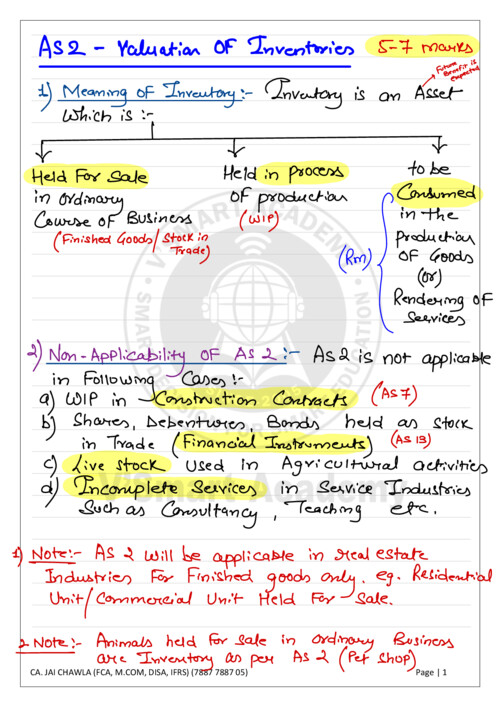 AS2 - Valuation OF Inventories 5-7 marks
Future Benefit is expected
1) Meaning of Inventory:- Inventory is an Asset
which is :-
Held For Sale
in ordinary
Course of Business
(Finished Goods/ Stock in Trade)
Held in process
of production
(WIP)
to be
Consumed
in the
Production
OF Goods
(or)
Rendering OF
Services
(Rm)
2) Non-Applicability OF AS 2 :- AS2 is not applicable
in Following Cases :-
a) WIP in Construction Contracts (AS 7)
b) Shares, Debentures, Bonds held as stock
in Trade (Financial Instruments) (AS 13)
c) Live stock used in Agricultural activities
d) Incomplete Services in Service Industries
Such as Consultancy, Teaching etc.
1) Note:- AS 2 will be applicable in real estate
Industries For Finished goods only. eg. Residential
Unit/Commercial Unit Held For Sale.
2. Note:- Animals held for sale in ordinary Business
are Inventory as per AS 2 (Pet shop)
CA. JAI CHAWLA (FCA, M.COM, DISA, IFRS) (7887 7887 05) Page | 1